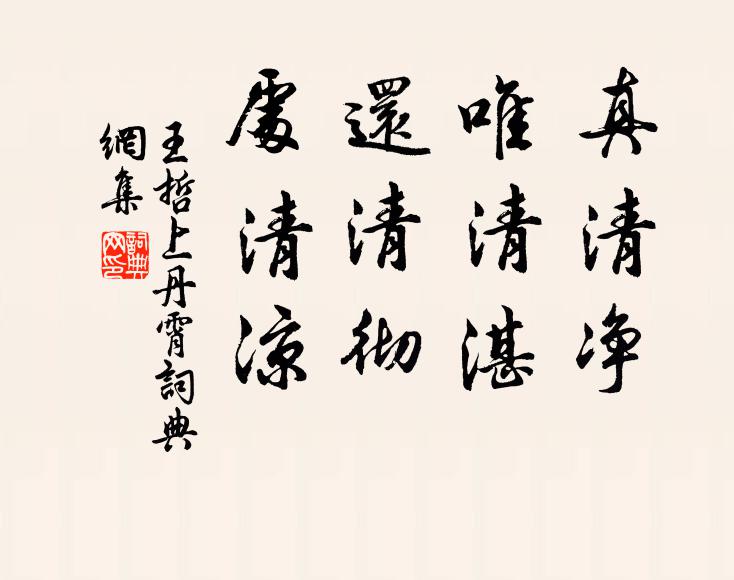 真清净
唯清湛
還清彻
處清凉
王哲上丹霄詞典
網集
詞典
网印